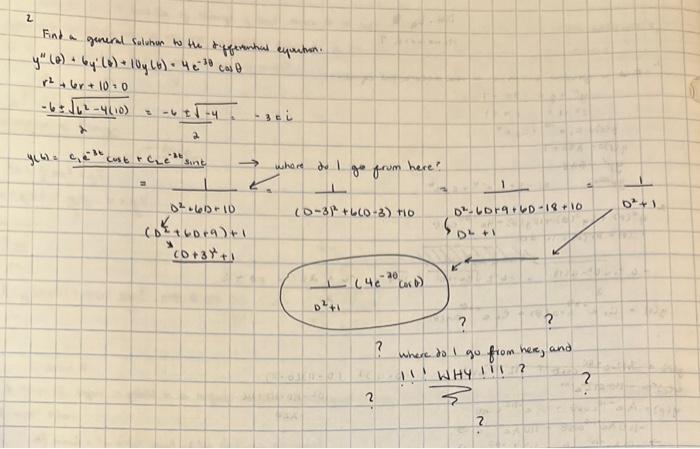 2
Find a general solution to the differential equation.
y"(θ) + 6y'(θ) + 10y(θ) = 4e^-3θ cos θ
r² + 6r + 10 = 0
-6 ± √6² - 4(10) / 2 = -6 ± √-4 / 2 = -3 ± i
y(t) = c₁e^-3t cos t + c₂e^-3t sin t → where do I go from here?
= 1 / D² + 6D + 10 = 1 / (D-3)² + 6(D-3) + 10 = 1 / D² - 6D + 9 + 6D - 18 + 10 = 1 / D² + 1
(D² + 6D + 9) + 1
D² + 1
(D+3)² + 1
1 / D² + 1 (4e^-3θ cos θ)
? ?
? where do I go from here, and
!!! WHY !!! ?
? ?
?